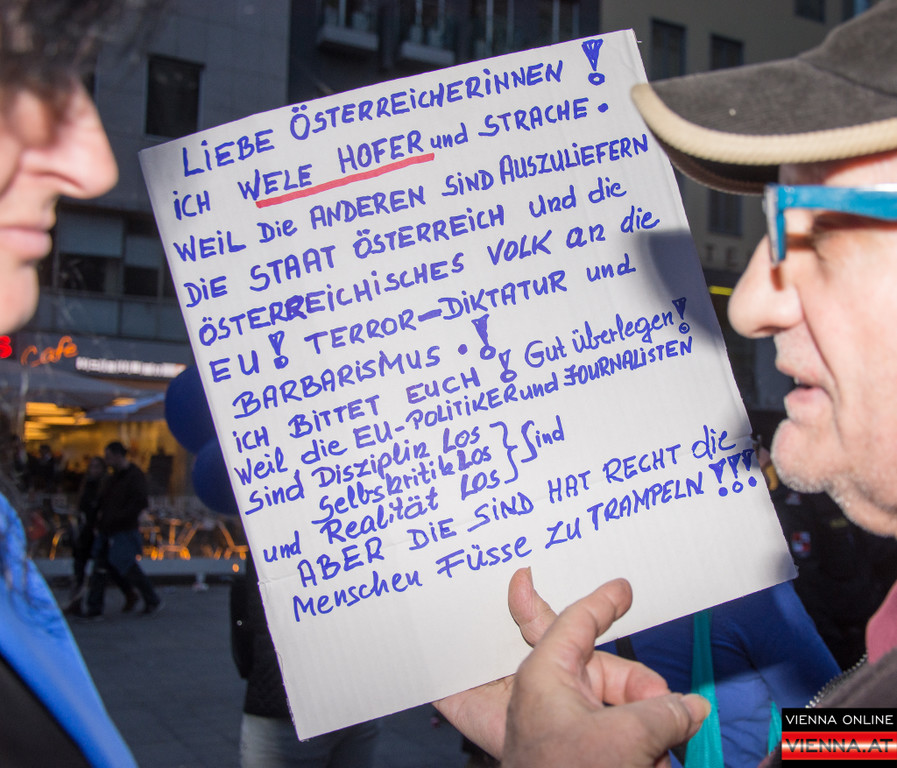 LIEBE ÖSTERREICHERINNEN !
ICH WELE HOFER und STRACHE.
WEIL Die ANDEREN SIND AUSZULIEFERN
DIE STAAT ÖSTERREICH und die
ÖSTERREICHISCHES VOLK an die
EU! TERROR-DIKTATUR und
BARBARISMUS .!
ICH BITTET EUCH! Gut überlegen!
Weil die EU-POLITIKER und JOURNALISTEN
Sind Disziplin Los
Selbskritik Los } Sind
und Realität Los
ABER DIE SIND HAT RECHT die
Menschen Füsse zu TRAMPELN !!!
Cafe
VIENNA ONLINE
VIENNA.AT